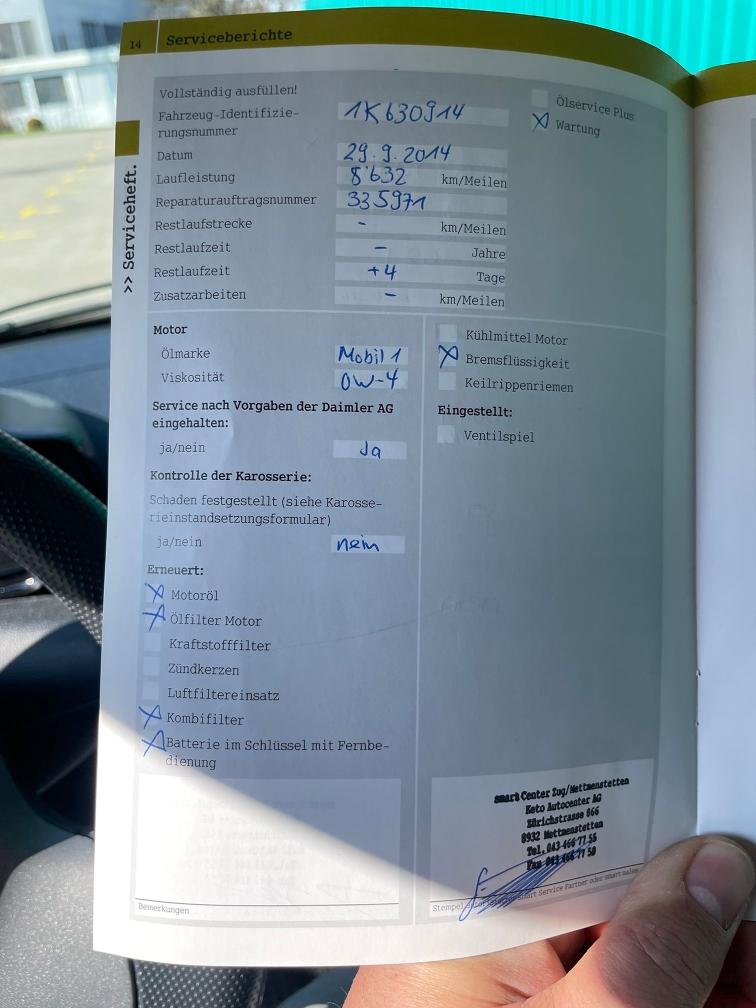 14 Serviceberichte
>> Serviceheft.
Vollständig ausfüllen!
Fahrzeug-Identifizie-
rungsnummer 1K630914
Datum 29.9.2014
Laufleistung 8'632 km/Meilen
Reparaturauftragsnummer 335971
Restlaufstrecke - km/Meilen
Restlaufzeit - Jahre
Restlaufzeit +4 Tage
Zusatzarbeiten - km/Meilen
Ölservice Plus
X Wartung
Motor
Ölmarke Mobil 1
Viskosität 0W-4
Service nach Vorgaben der Daimler AG
eingehalten:
ja/nein Ja
Kontrolle der Karosserie:
Schaden festgestellt (siehe Karosse-
rieinstandsetzungsformular)
ja/nein nein
Erneuert:
X Motoröl
X Ölfilter Motor
Kraftstofffilter
Zündkerzen
Luftfiltereinsatz
X Kombifilter
X Batterie im Schlüssel mit Fernbe-
dienung
Kühlmittel Motor
X Bremsflüssigkeit
Keilrippenriemen
Eingestellt:
Ventilspiel
Bemerkungen
smart Center Zug/Mettmenstetten
Keto Autocenter AG
Zürichstrasse 866
8932 Mettmenstetten
Tel. 043 466 77 55
Fax 043 466 77 50
Stempel autorisierter smart Service Partner oder smart sales